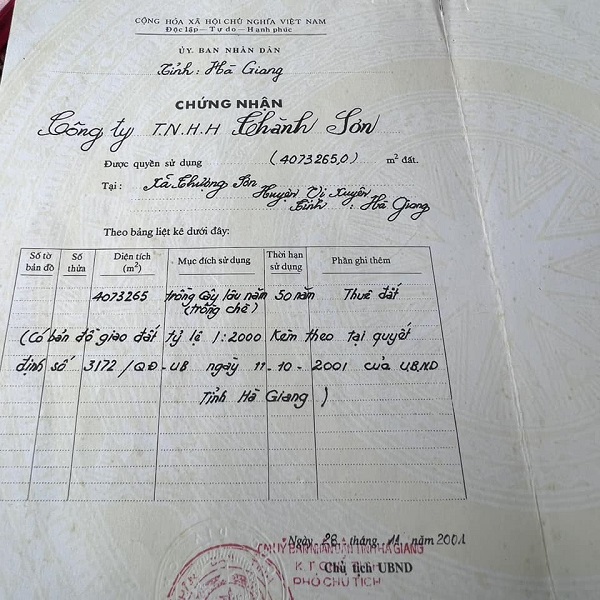 CỘNG HÒA XÃ HỘI CHỦ NGHĨA VIỆT NAM
Độc lập - Tự do - Hạnh phúc
ỦY BAN NHÂN DÂN
Tỉnh: Hà Giang
CHỨNG NHẬN
Công ty T.N.H.H Thành Sơn
Được quyền sử dụng (4073265,0) m² đất.
Tại: Xã Thượng Sơn Huyện Vị Xuyên
Tỉnh: Hà Giang
Theo bảng liệt kê dưới đây:
Số tờ bản đồ Số thửa Diện tích (m²) Mục đích sử dụng Thời hạn sử dụng Phần ghi thêm
4073265 trồng cây lâu năm 50 năm Thuê đất
(trồng chè)
(Có bản đồ giao đất tỷ lệ 1:2000 Kèm theo tại quyết
định số 3172/QĐ-UB ngày 11-10-2001 của UBND
Tỉnh Hà Giang)
Ngày 26 tháng 11 năm 2001
ỦY BAN NHÂN DÂN TỈNH HÀ GIANG
K.T
Chủ tịch UBND
PHÓ CHỦ TỊCH